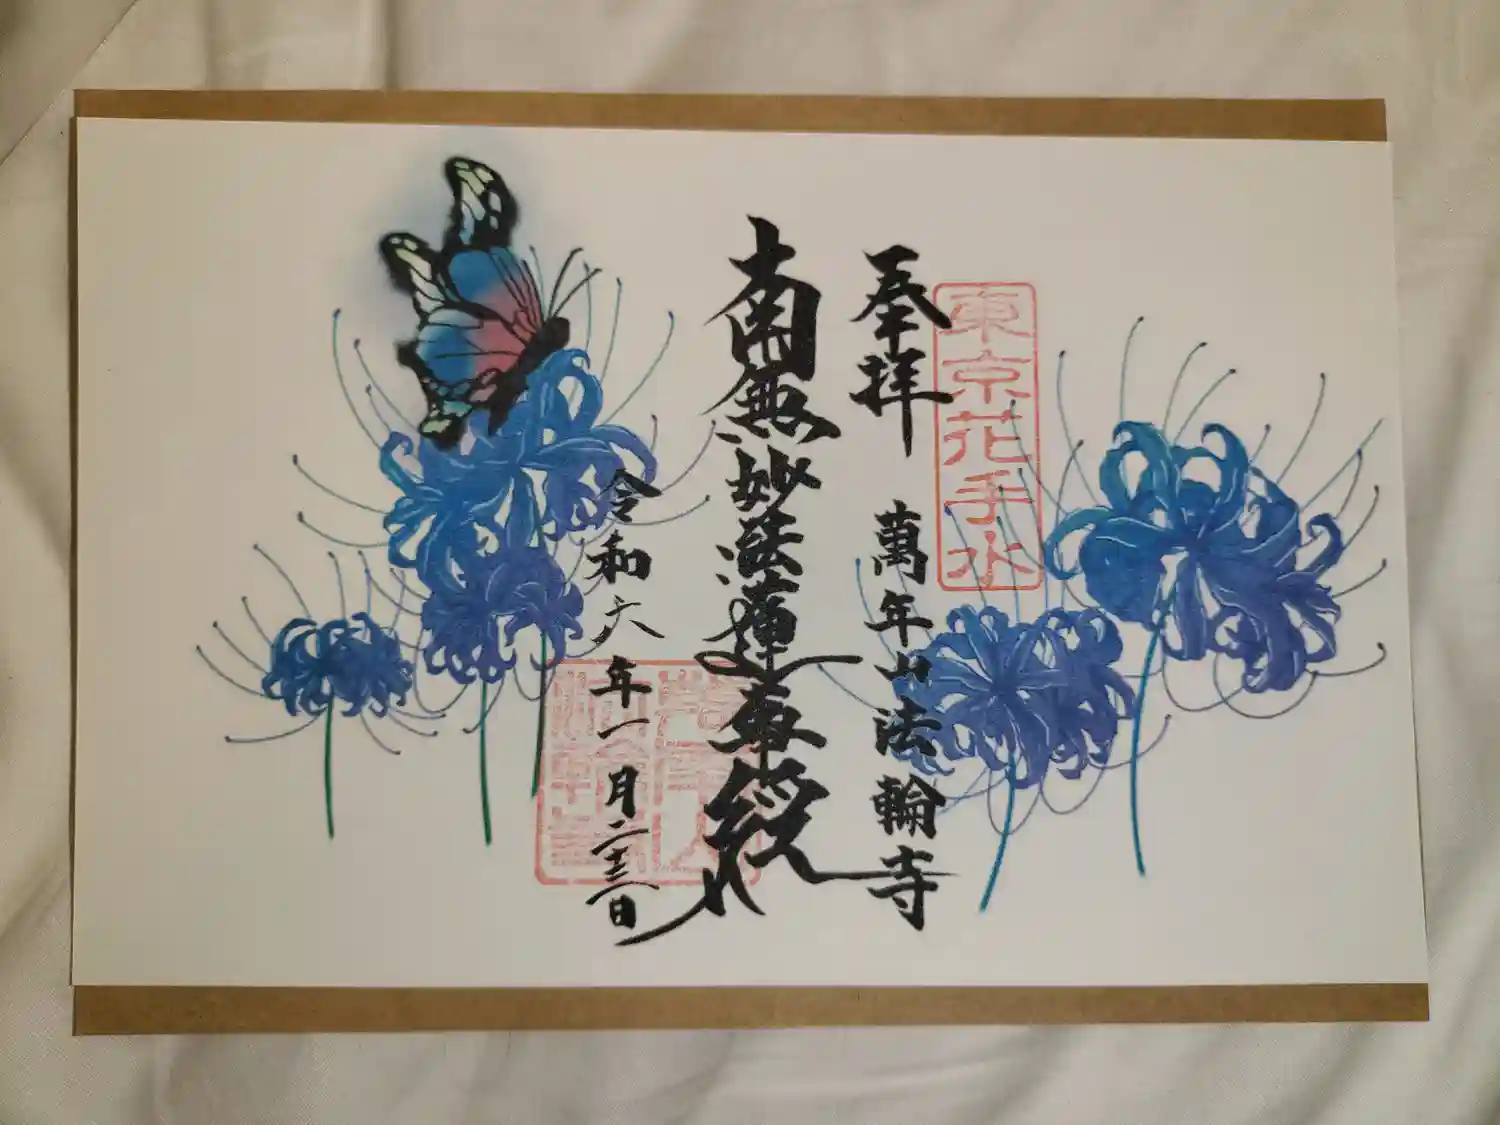 東京花手水
奉拝
萬年山法輪寺
南無妙法蓮華経
令和六年一月二十三日